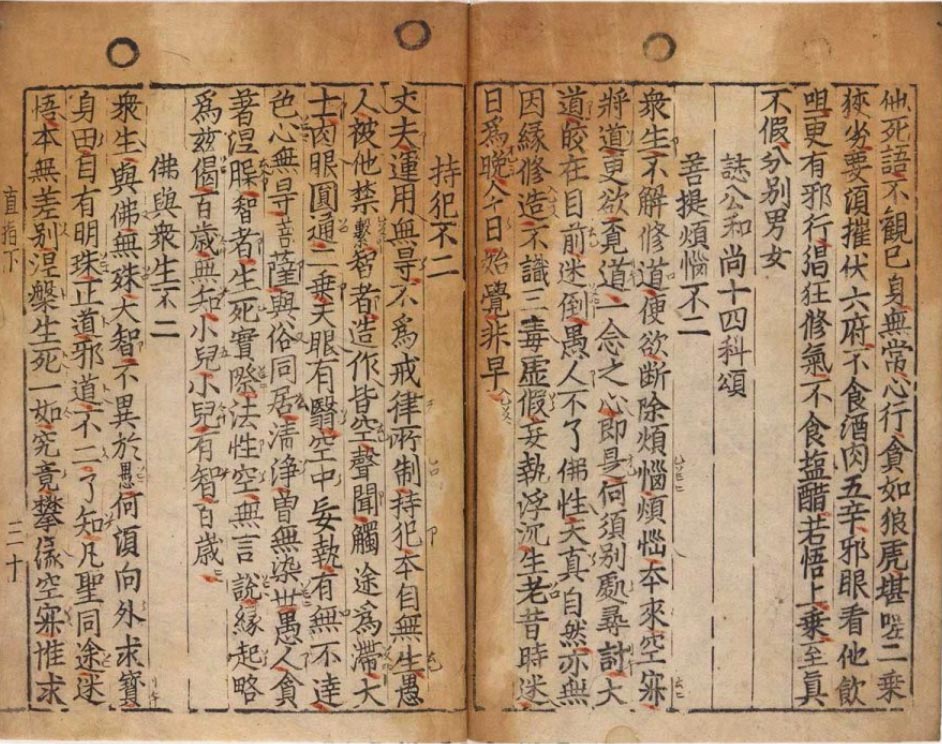 他死語不觀己身無常心行貪如狼虎堪嗟二乘
狹劣要須摧伏六府不食酒肉五辛邪眼看他飮
咀更有邪行猖狂修氣不食塩醋若悟上乘至眞
不假分別男女
誌公和尚十四科頌
菩提煩惱不二
衆生不解修道便欲斷除煩惱煩惱本來空寂
將道更欲覓道一念之心即是何須別處尋討大
道皎在目前迷倒愚人不了佛性天眞自然亦無
因緣修造不識三毒虛假妄執浮沉生老昔時迷
日爲晩今日始覺非早
持犯不二
丈夫運用無㝵不爲戒律所制持犯本自無生愚
人被他禁繫智者造作皆空聲聞觸途爲滯大
士肉眼圓通二乘天眼有翳空中妄執有無不達
色心無㝵菩薩與俗同居清淨曾無染世愚人貪
著涅槃智者生死實際法性空無言說緣起略
爲玆偈百歲無知小兒小兒有智百歲
佛與衆生不二
衆生與佛無殊大智不異於愚何須向外求寶
身田自有明珠正道邪道不二了知凡聖同途迷
悟本無差別涅槃生死一如究竟攀緣空寂惟求
直指下 三十